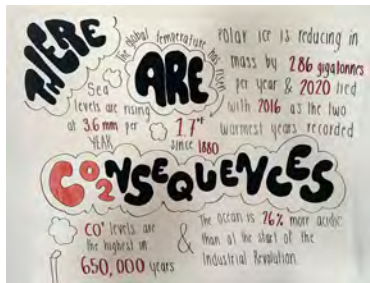 THERE
ARE
CO2NSEQUENCES
the global temperature has risen
1.7°F
since 1880
Sea
levels are rising
at 3.6 mm per
YEAR
Polar ice is reducing in
mass by 286 gigatonnes
per year & 2020 tied
with 2016 as the two
warmest years recorded
CO² levels are
the highest in
650,000 years
&
The ocean is 26% more acidic
than at the start of the
Industrial Revolution